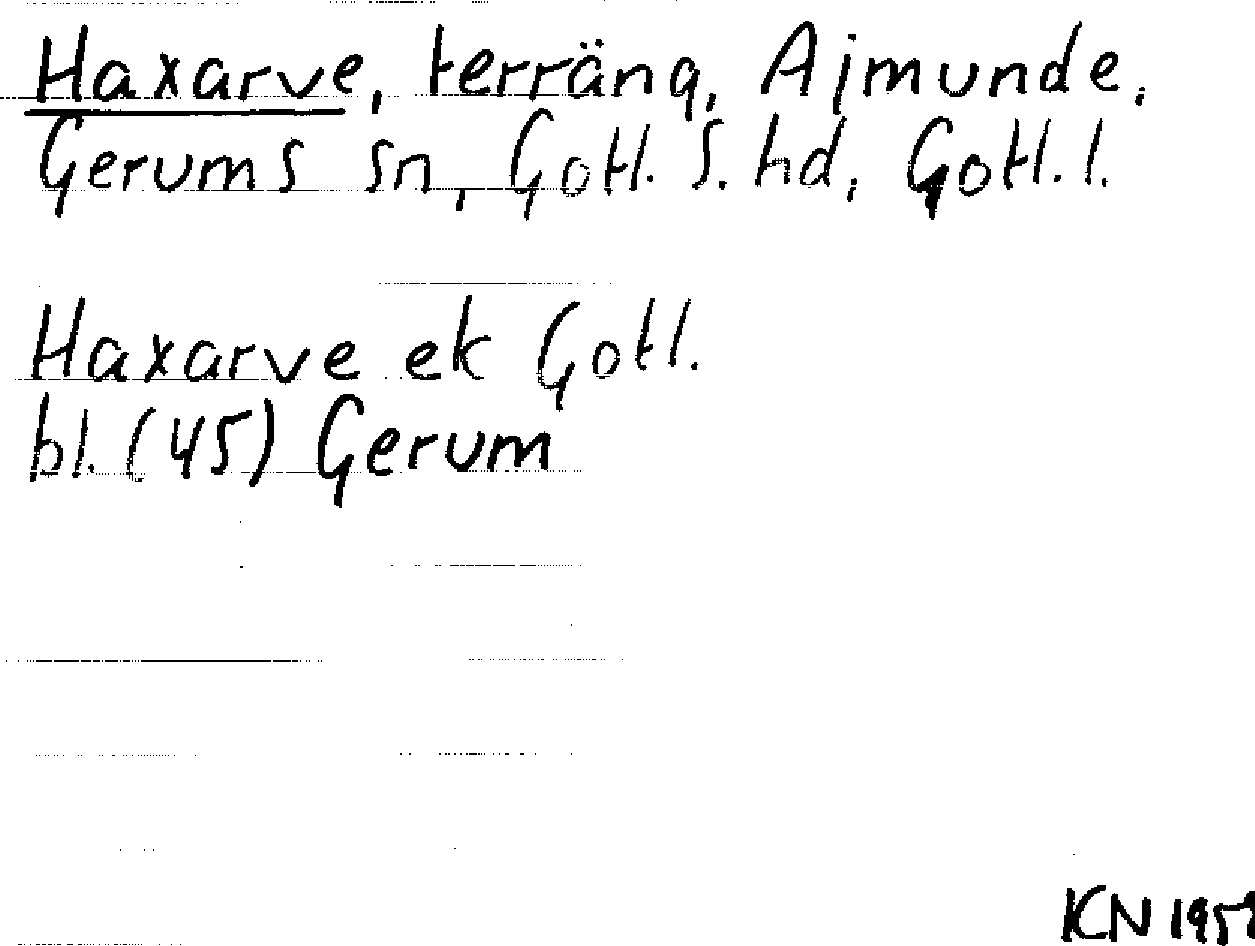 Haxarve, terräng, Ajmunde,
Gerums sn, Gotl. S. hd, Gotl. l.
Haxarve ek Gotl.
bl. (45) Gerum
KCN